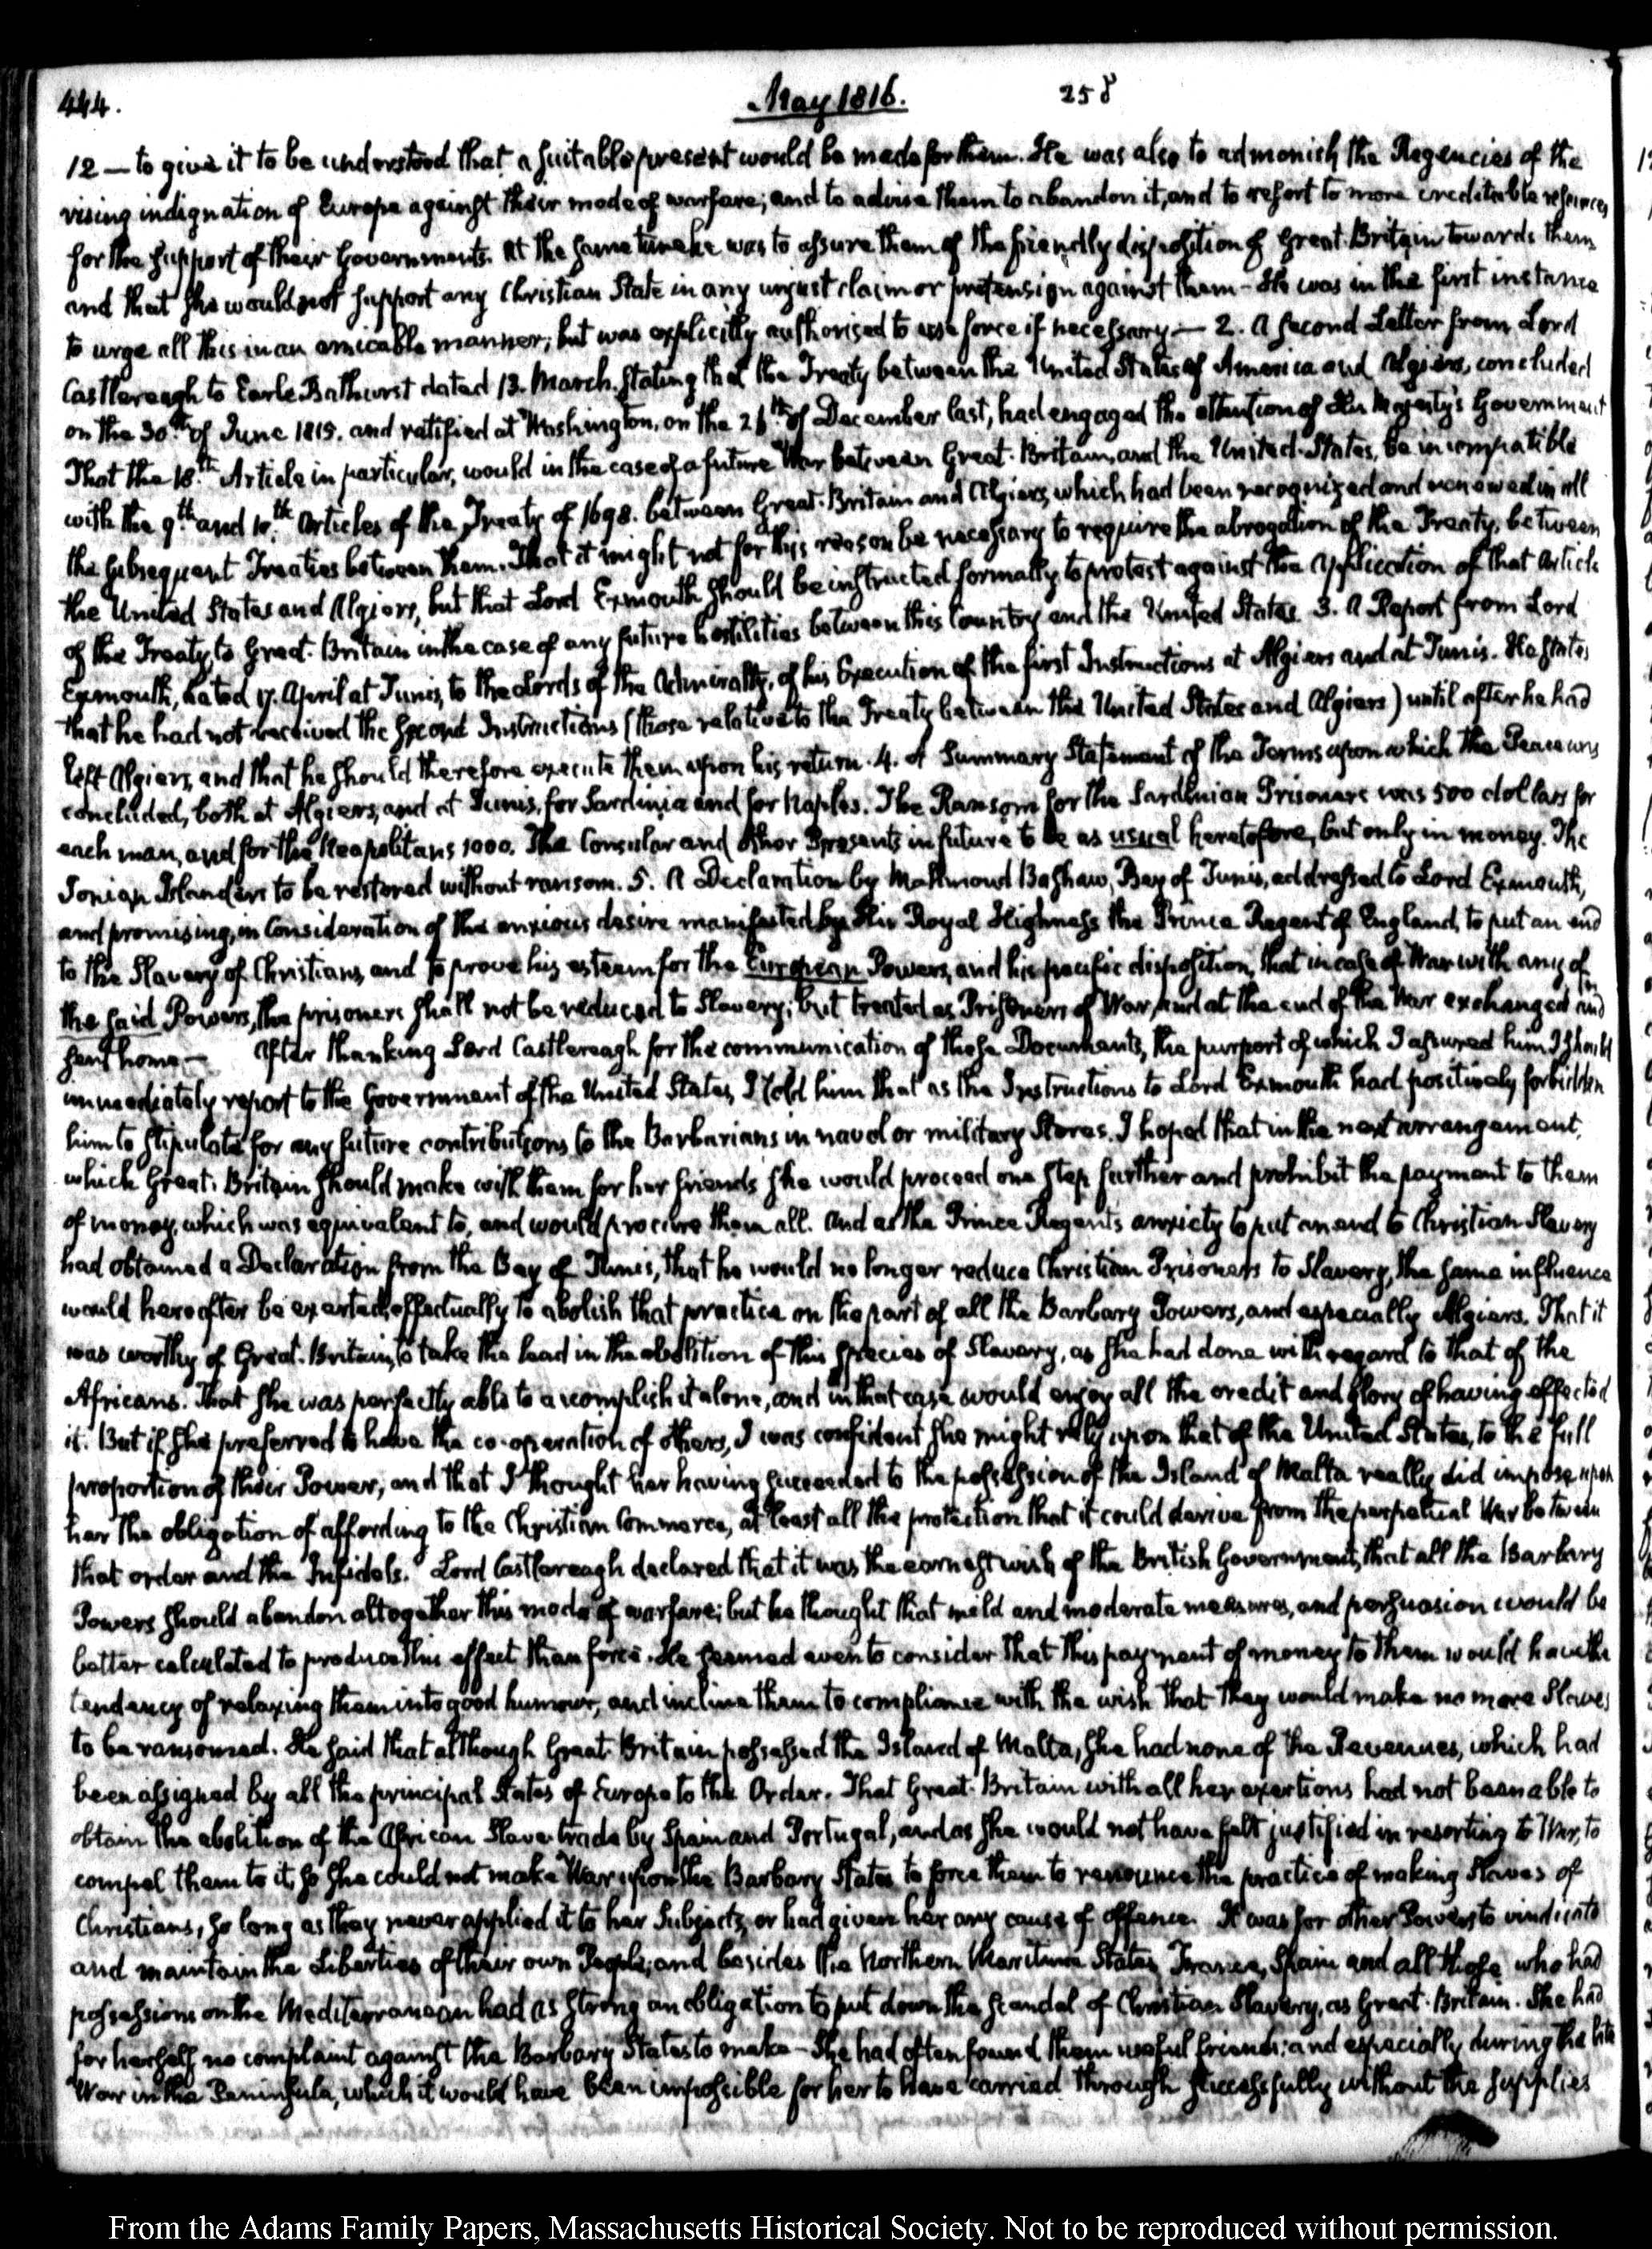 444.
May 1816.
258
12 — to give it to be understood that a suitable present would be made for them. He was also to admonish the Regencies of the
rising indignation of Europe against their mode of warfare; and to advise them to abandon it, and to resort to more creditable resources
for the support of their Governments. At the same time he was to assure them of the friendly disposition of Great-Britain towards them
and that she would not support any Christian State in any unjust claim or pretension against them — He was in the first instance
to urge all this in an amicable manner; but was explicitly authorised to use force if necessary — 2. A second Letter from Lord
Castlereagh to Earle Bathurst dated 13. March, stating that the Treaty between the United States of America and Algiers, concluded
on the 30th. of June 1815. and ratified at Washington, on the 26th. of December last, had engaged the attention of His Majesty's Government
That the 18.th Article in particular, would in the case of a future War between Great-Britain, and the United-States, be incompatible
with the 9th. and 10.th Articles of the Treaty of 1698. between Great-Britain and Algiers, which had been recognized and renewed in all
the subsequent Treaties between them. That it might not for this reason be necessary to require the abrogation of the Treaty, between
the United States and Algiers, but that Lord Exmouth should be instructed formally to protest against the application of that Article
of the Treaty, to Great-Britain in the case of any future hostilities between this Country and the United States. 3. A Report from Lord
Exmouth, dated 17. April at Tunis, to the Lords of the Admiralty, of his Execution of the first Instructions at Algiers and at Tunis. He states
that he had not received the second Instructions (those relative to the Treaty between the United States and Algiers) until after he had
left Algiers, and that he should therefore execute them upon his return. 4. A Summary Statement of the Terms upon which the Peace was
concluded, both at Algiers, and at Tunis, for Sardinia and for Naples. The Ransom for the Sardinian Prisoners was 500 dollars for
each man, and for the Neapolitans 1000. The Consular and other Presents in future to be as usual heretofore, but only in money. The
Ionian Islanders to be restored without ransom. 5. A Declaration by Mahmoud Bashaw, Bey of Tunis, addressed to Lord Exmouth,
and promising, in Consideration of the anxious desire manifested by His Royal Highness the Prince Regent of England, to put an end
to the Slavery of Christians, and to prove his esteem for the European Powers, and his pacific disposition, that in case of War with any of
the said Powers, the prisoners shall not be reduced to Slavery; but treated as Prisoners of War, and at the end of the War exchanged and
sent home — After thanking Lord Castlereagh for the communication of these Documents, the purport of which I assured him I should
immediately report to the Government of the United States, I told him that as the Instructions to Lord Exmouth had positively forbidden
him to stipulate for any future contributions to the Barbarians in naval or military Stores, I hoped that in the next arrangement,
which Great-Britain should make with them for her friends she would proceed one step further and prohibit the payment to them
of money, which was equivalent to, and would procure them all. And as the Prince Regent's anxiety to put an end to Christian Slavery
had obtained a Declaration from the Bey of Tunis, that he would no longer reduce Christian Prisoners to Slavery, the same influence
would hereafter be exerted, effectually to abolish that practice on the part of all the Barbary Powers, and especially Algiers. That it
was worthy of Great-Britain, to take the lead in the abolition of this species of Slavery, as she had done with regard to that of the
Africans. That she was perfectly able to accomplish it alone, and in that case would enjoy all the credit and glory of having effected
it. But if she preferred to have the co-operation of others, I was confident she might rely upon that of the United States, to the full
proportion of their Power; and that I thought her having succeeded to the possession of the Island of Malta really did impose upon
her the obligation of affording to the Christian Commerce, at least all the protection that it could derive from the perpetual War between
that order and the Infidels. Lord Castlereagh declared that it was the earnest wish of the British Government, that all the Barbary
Powers should abandon altogether this mode of warfare; but he thought that mild and moderate measures, and persuasion would be
better calculated to produce this effect than force. He seemed even to consider that this payment of money to them would have the
tendency of relaxing them into good humour, and incline them to compliance with the wish that they would make no more Slaves
to be ransomed. He said that although Great-Britain possessed the Island of Malta, she had none of the Revenues, which had
been assigned by all the principal States of Europe to the Order. That Great-Britain with all her exertions had not been able to
obtain the abolition of the African Slave trade by Spain and Portugal, and as she would not have felt justified in resorting to War, to
compel them to it, so she could not make War upon the Barbary States to force them to renounce the practice of making Slaves of
Christians, so long as they never applied it to her Subjects, or had given her any cause of offence. It was for other Powers to vindicate
and maintain the Liberties of their own People; and besides the Northern Maritime States, France, Spain and all those who had
possessions on the Mediterranean had as strong an obligation to put down the scandal of Christian Slavery, as Great-Britain. She had
for herself no complaint against the Barbary States to make — She had often found them useful friends; and especially during the late
War in the Peninsula, which it would have been impossible for her to have carried through successfully without the supplies
From the Adams Family Papers, Massachusetts Historical Society. Not to be reproduced without permission.